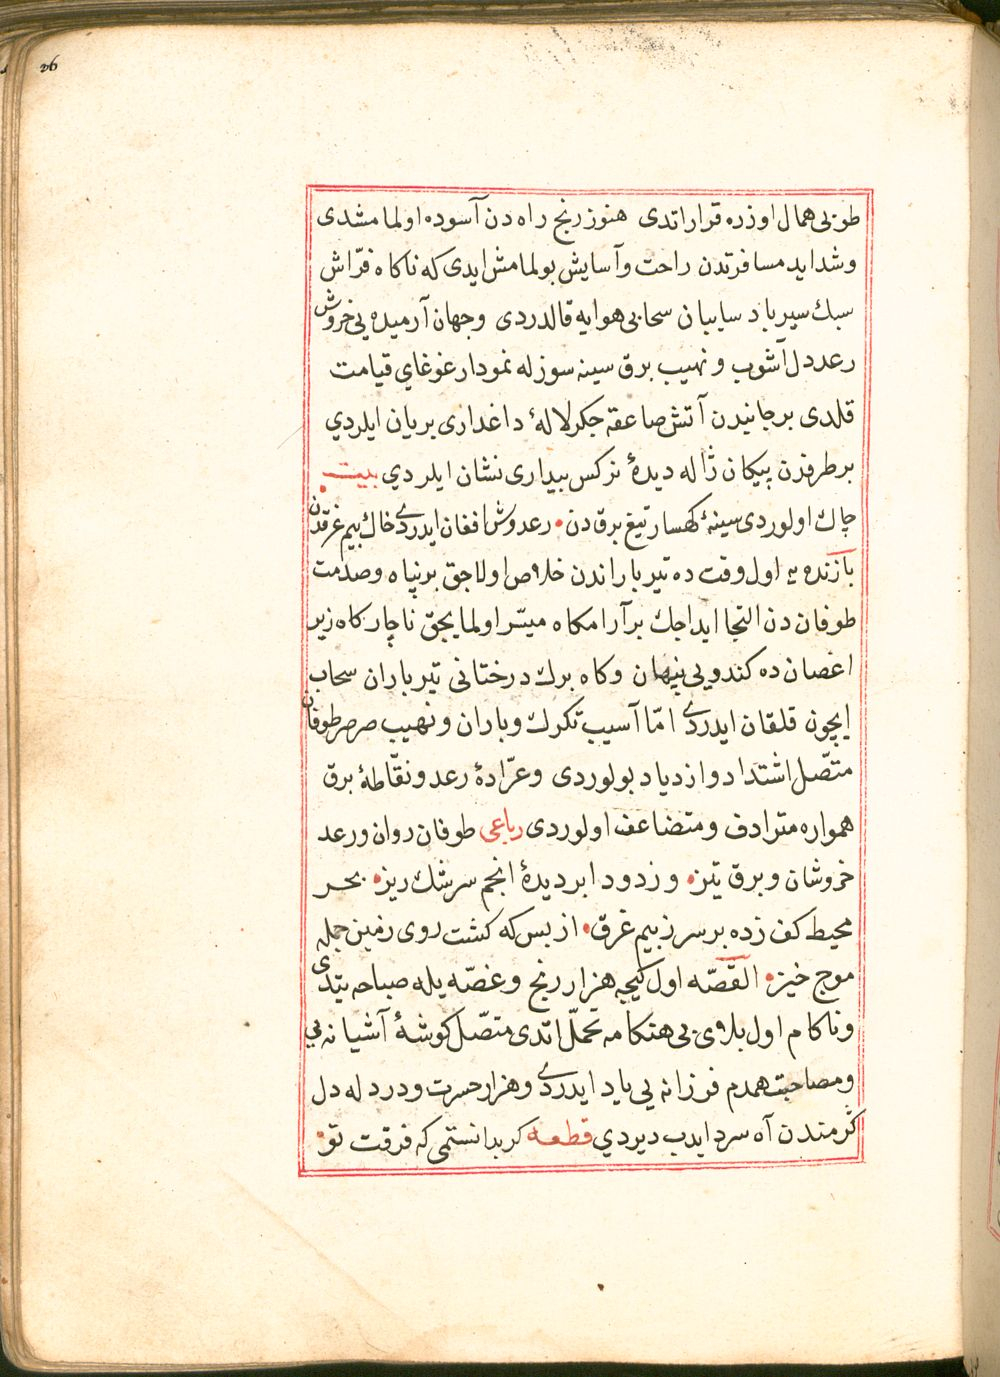 26
طوبی همال اوزره قرار اتدی هنوز رنج راه دن آسوده اولمامشدی
وشداید مسافرتدن راحت وآسایش بولمامش ایدی که ناکاه فرّاش
سبك سیر باد سایبان سحابی هوایه قالدردی وجهان آرمیده یی خروش
رعد دل آشوب و نهیب برق سینه سوزله نمودار غوغای قیامت
قلدی بر جانبدن آتش صاعقه جکر لالهٔ داغداری بریان ایلردي
بر طرفدن پیکان ژاله دیدهٔ نرکس بیداری نشان ایلردي بیت
چاك اولوردی سینهٔ کهسار تیغ برق دن • رعد وش افغان ایدردی خاك بیم غرقدن
بازنده یه اول وقت ده تیر باراندن خلاص اولاجق بر پناه وصدمت
طوفان دن التجا ایداجك بر آرامکاه میسّر اولمایجق ناچار کاه زیر
اغصان ده کندویی پنهان وکاه برك درختانی تیر باران سحاب
ایچون قلقان ایدردی امّا آسیب تکرك وباران ونهیب صرصر طوفان
متّصل اشتداد وازدیاد بولوردی وعرّادهٔ رعد ونفّاطهٔ برق
همواره مترادف ومتضاعف اولوردی رباعی طوفان روان ورعد
خروشان وبرق تیز • وز دود ابر دیدهٔ انجم سرشك ریز • بحر
محیط کف زده بر سر ز بیم غرق • از بس که کشت روی زمین جمله
موج خیز • القصّه اول کیجه هزار رنج وغصّه یله صباحه یتدی
وناکام اول بلای بی هنکامه تحمّل اتدی متصّل کوشهٔ آشیانه یی
ومصاحبت همدم فرزانه یی یاد ایدردی وهزار حسرت ودردله دل
کرمندن آه سرد ایدب دیردي قطعه کر بدانستمی که فرقت تو •